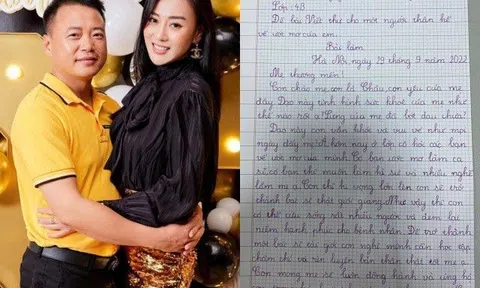 Lớp: 4B
Đề bài: Viết thư cho một người thân kể
về ước mơ của em.
Bài làm
Hà Nội ngày 19 tháng 9 năm 2022
Mẹ thương mến!
Con chào mẹ, con là Châu con yêu của mẹ
đây. Dạo này tình hình sức khoẻ của mẹ như
thế nào rồi ạ? Lưng của mẹ đã bớt đau chưa?
Dạo này con vẫn khoẻ và vui vẻ như mọi
ngày đấy mẹ ạ. Hôm nay ở lớp cô hỏi các bạn
về ước mơ của mình. Có bạn ước mơ làm ca
sĩ, có bạn thì muốn làm hoạ sĩ và nhiều nghề
lắm mẹ ạ. Còn con thì hi vọng lớn lên con sẽ trở
thành bác sĩ thật giỏi giang. Như vậy thì con
có thể cứu sống rất nhiều người và đem lại
niềm hạnh phúc cho bệnh nhân. Để trở thành
một bác sĩ tài giỏi con nghĩ mình cần học tập
chăm chỉ và rèn luyện bản thân thật tốt mẹ ạ.
Con mong mẹ sẽ luôn đồng hành và ủng hộ